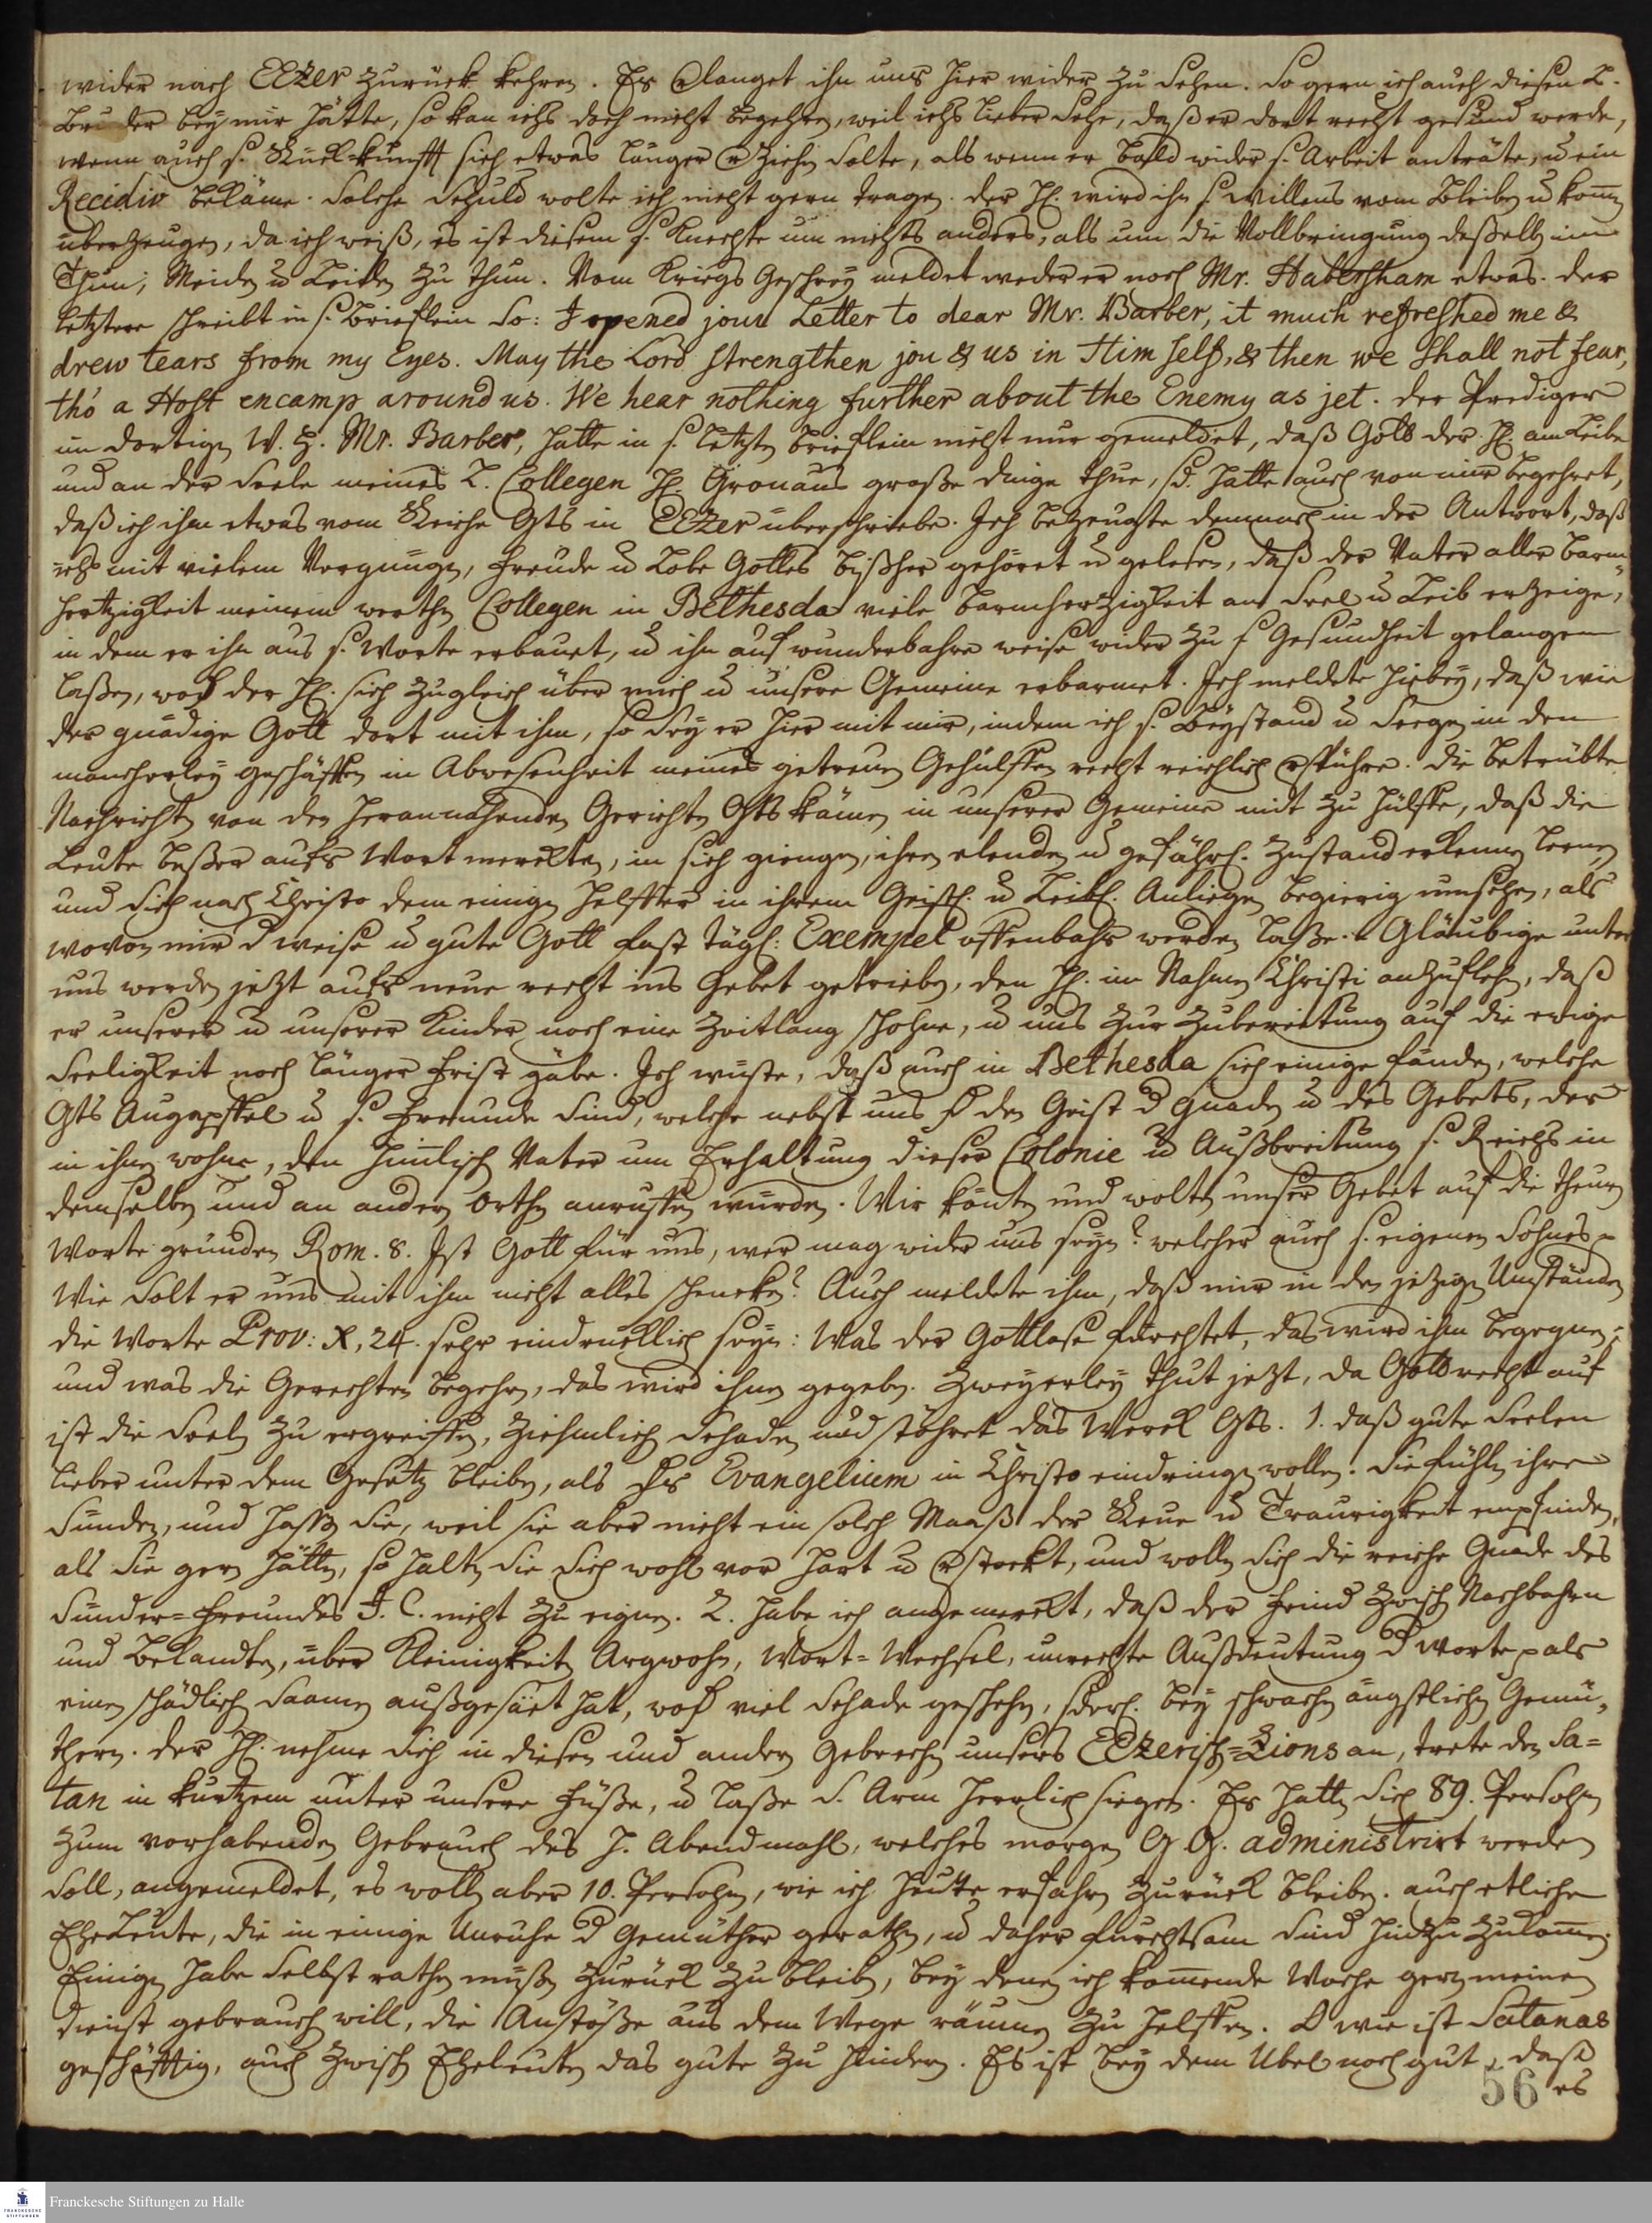 wider nach EEzer zurück kehren. Es verlanget ihn uns hier wider zu sehen. So gern ich auch diesen l.
Bruder bey mir hätte, so kan ichs doch nicht begehren, weil ichs lieber sehe, daß er dort recht gesund werde,
wenn auch s. Rückkunfft sich etwas länger verziehen solte, als wenn er bald wider s. Arbeit anträte, u ein
Recidiv bekäme. Solche Schuld wolte ich nicht gern tragen. der H. wird ihn s. Willens vom Bleiben u komen
überzeugen, da ich weiß, es ist diesem s. Knechte um nichts anders, als um die Vollbringung deßelben im
Thun, Meiden u Leiden zu thun. Vom Kriegs Geschrey meldet weder er noch Mr. Habersham etwas. der
letztere schreibt in s. Brieflein so: I opened jour Letter to dear Mr. Barber, it much refreshed me &
drew tears from my Eyes. May the Lord strengthen jou & us in Him self, & then we shall not fear,
tho' a Host encamp around us. We hear nothing further about the Enemy as jet. der Prediger
im dortigen W. H. Mr. Barber, hatte in s. letzten brieflein nicht nur gemeldet, daß Gott der H. am Leibe
und an der Seele meines l. Collegen H. Gronaus große dinge thue, sd. hatte auch von mir begehret,
daß ich ihm etwas vom Reiche Gts in EEzer überschriebe. Ich bezeugte demnach in der Antwort, daß
ichs mit vielem Vergnügen, Freude u Lobe Gottes bißher gehöret u gelesen, daß der Vater aller Barm-
hertzigkeit meinem werthen Collegen in Bethesda viele Barmherzigkeit an Seel u Leib erzeige,
in dem er ihn aus s. Worte erbauet, u ihn auf wunderbahre weise wider zu s. Gesundheit gelangen
laßen, wodch der H. sich zugleich über mich u unsere Gemeine erbarmet. Ich meldete hiebey, daß wie
der gnädige Gott dort mit ihm, so sey er hier mit mir, indem ich s. Beystand u Seegen in den
mancherley geschäfften in Abwesenheit meines getreuen Gehülffen recht reichlich verspühre. Die betrübte
Nachrichten von den herannahenden Gerichten Gts kämen in unserer Gemeine mit zu hülffe, daß die
Leute beßer aufs Wort merckten, in sich giengen, ihren elenden u gefährl. Zustand erkennen lernen
und sich nach Christo dem einigen Helffer in ihrem Geistl. u Leibl. Anliegen begierig umsehen, als
wovon mir d weise u gute Gott fast tägl. Exempel offenbahr werden laße. Gläubige unter
uns werden jetzt aufs neue recht ins Gebet getrieben, den H. im Nahmen Christi anzuflehen, daß
er unserer u unserer Kinder noch eine Zeitlang schohne, u uns zur Zubereitung auf die ewige
Seeligkeit noch länger Frist gäbe. Ich wüste, daß auch in Bethesda sich einige fänden, welche
Gts Augapffel u s. Freunde sind, welche nebst uns dch den Geist d Gnaden u des Gebets, der
in ihnen wohne, den himlischen Vater um Erhaltung dieser Colonie u Außbreitung s. Reichs in
demselben und an andern Orthen anruffen würden. Wir könten und wolten unser Gebet auf die theuren
Worte gründen Rom. 8. Ist Gott für uns, wer mag wider uns seyn? welcher auch s. eigenen Sohnes p
Wie solt er uns mit ihm nicht alles schencken? Auch meldete ihm, daß mir in den jetzigen Umständen
die Worte Prov: X, 24. sehr eindrücklich seyn: Was der Gottlose fürchtet, das wird ihm begegnen;
und was die Gerechten begehren, das wird ihnen gegeben. Zweyerley thut jetzt, da Gott recht auf
ist die Seelen zu ergreiffen, ziehmlich Schaden und stöhret das Werck Gts. 1. daß gute Seelen
lieber unter dem Gesetz bleiben, als dchs Evangelium in Christo eindringen wollen. Sie fühlen ihre
Sünden, und haßen sie, weil sie aber nicht ein solch Maaß der Reue u Traurigkeit empfinden,
als sie gern hätten, so halten sie sich wohl vor hart u verstockt, und wollen sich die reiche Gnade des
Sünder=Freundes J. C. nicht zu eignen. 2. habe ich angemerckt, daß der Feind zwischen Nachbahren
und Bekandten, über Kleinigkeiten Argwohn, Wort=Wechsel, unrechte Außdeutung d Worte p als
einen schädlichen Saamen außgesäet hat, wodch viel Schade geschehen, sderl. bey schwachen ängstlichen Gemü-
thern. der H. nehme sich in diesen und andern Gebrechen unsers EEzerisch=Zions an, trete den Sa=
tan in kurtzem unter unsere Füße, u laße s. Arm herrlich siegen. Es hatten sich 89. Persohnen
zum vorhabenden Gebrauch des H. Abendmahls, welches morgen G. G. administrirt werden
soll, angemeldet, es wollen aber 10. Persohnen, wie ich heute erfahren zurück bleiben. auch etliche
EheLeute, die in einige Unruhe d Gemüther gerathen, u daher furchtsam sind hinzu zukomen.
Einigen habe selbst rathen müßen zurück zu bleiben, bey denen ich komende Woche gern meinen
dienst gebrauchen will, die Anstöße aus dem Wege räumen zu helffen. O wie ist Satanas
geschäfftig, auch zwischen Eheleuten das gute zu hindern. Es ist bey dem Übel noch gut, daß
es
56
Franckesche Stiftungen zu Halle